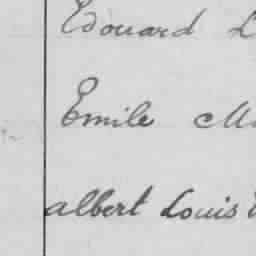 Edouard L
Emile M
albert Louis